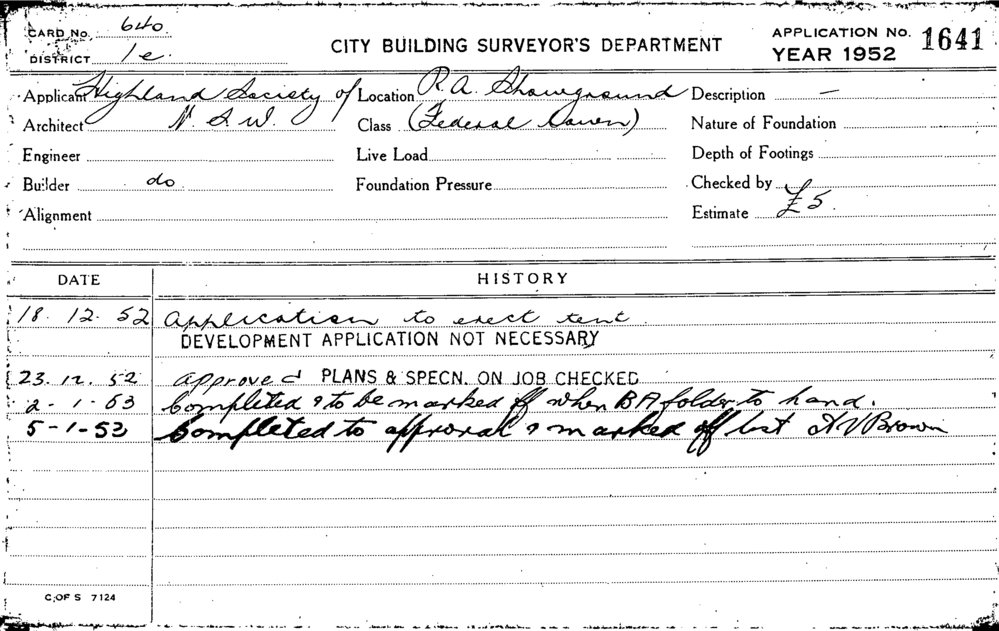 CARD No. 640.
DISTRICT 1e.
CITY BUILDING SURVEYOR'S DEPARTMENT
APPLICATION No. 1641
YEAR 1952
Applicant Highland Society of Location R.A. Showground Description —
Architect N.S.W. Class (Federal Lawn) Nature of Foundation
Engineer Live Load Depth of Footings
Builder do Foundation Pressure Checked by
Alignment Estimate £5.
DATE HISTORY
18. 12. 52 Application to erect tent.
DEVELOPMENT APPLICATION NOT NECESSARY
23. 12. 52 approved PLANS & SPECN. ON JOB CHECKED
2-1-53 Completed & to be marked off when BA folder to hand.
5-1-53 Completed to approval & marked off list
C. OF S 7124